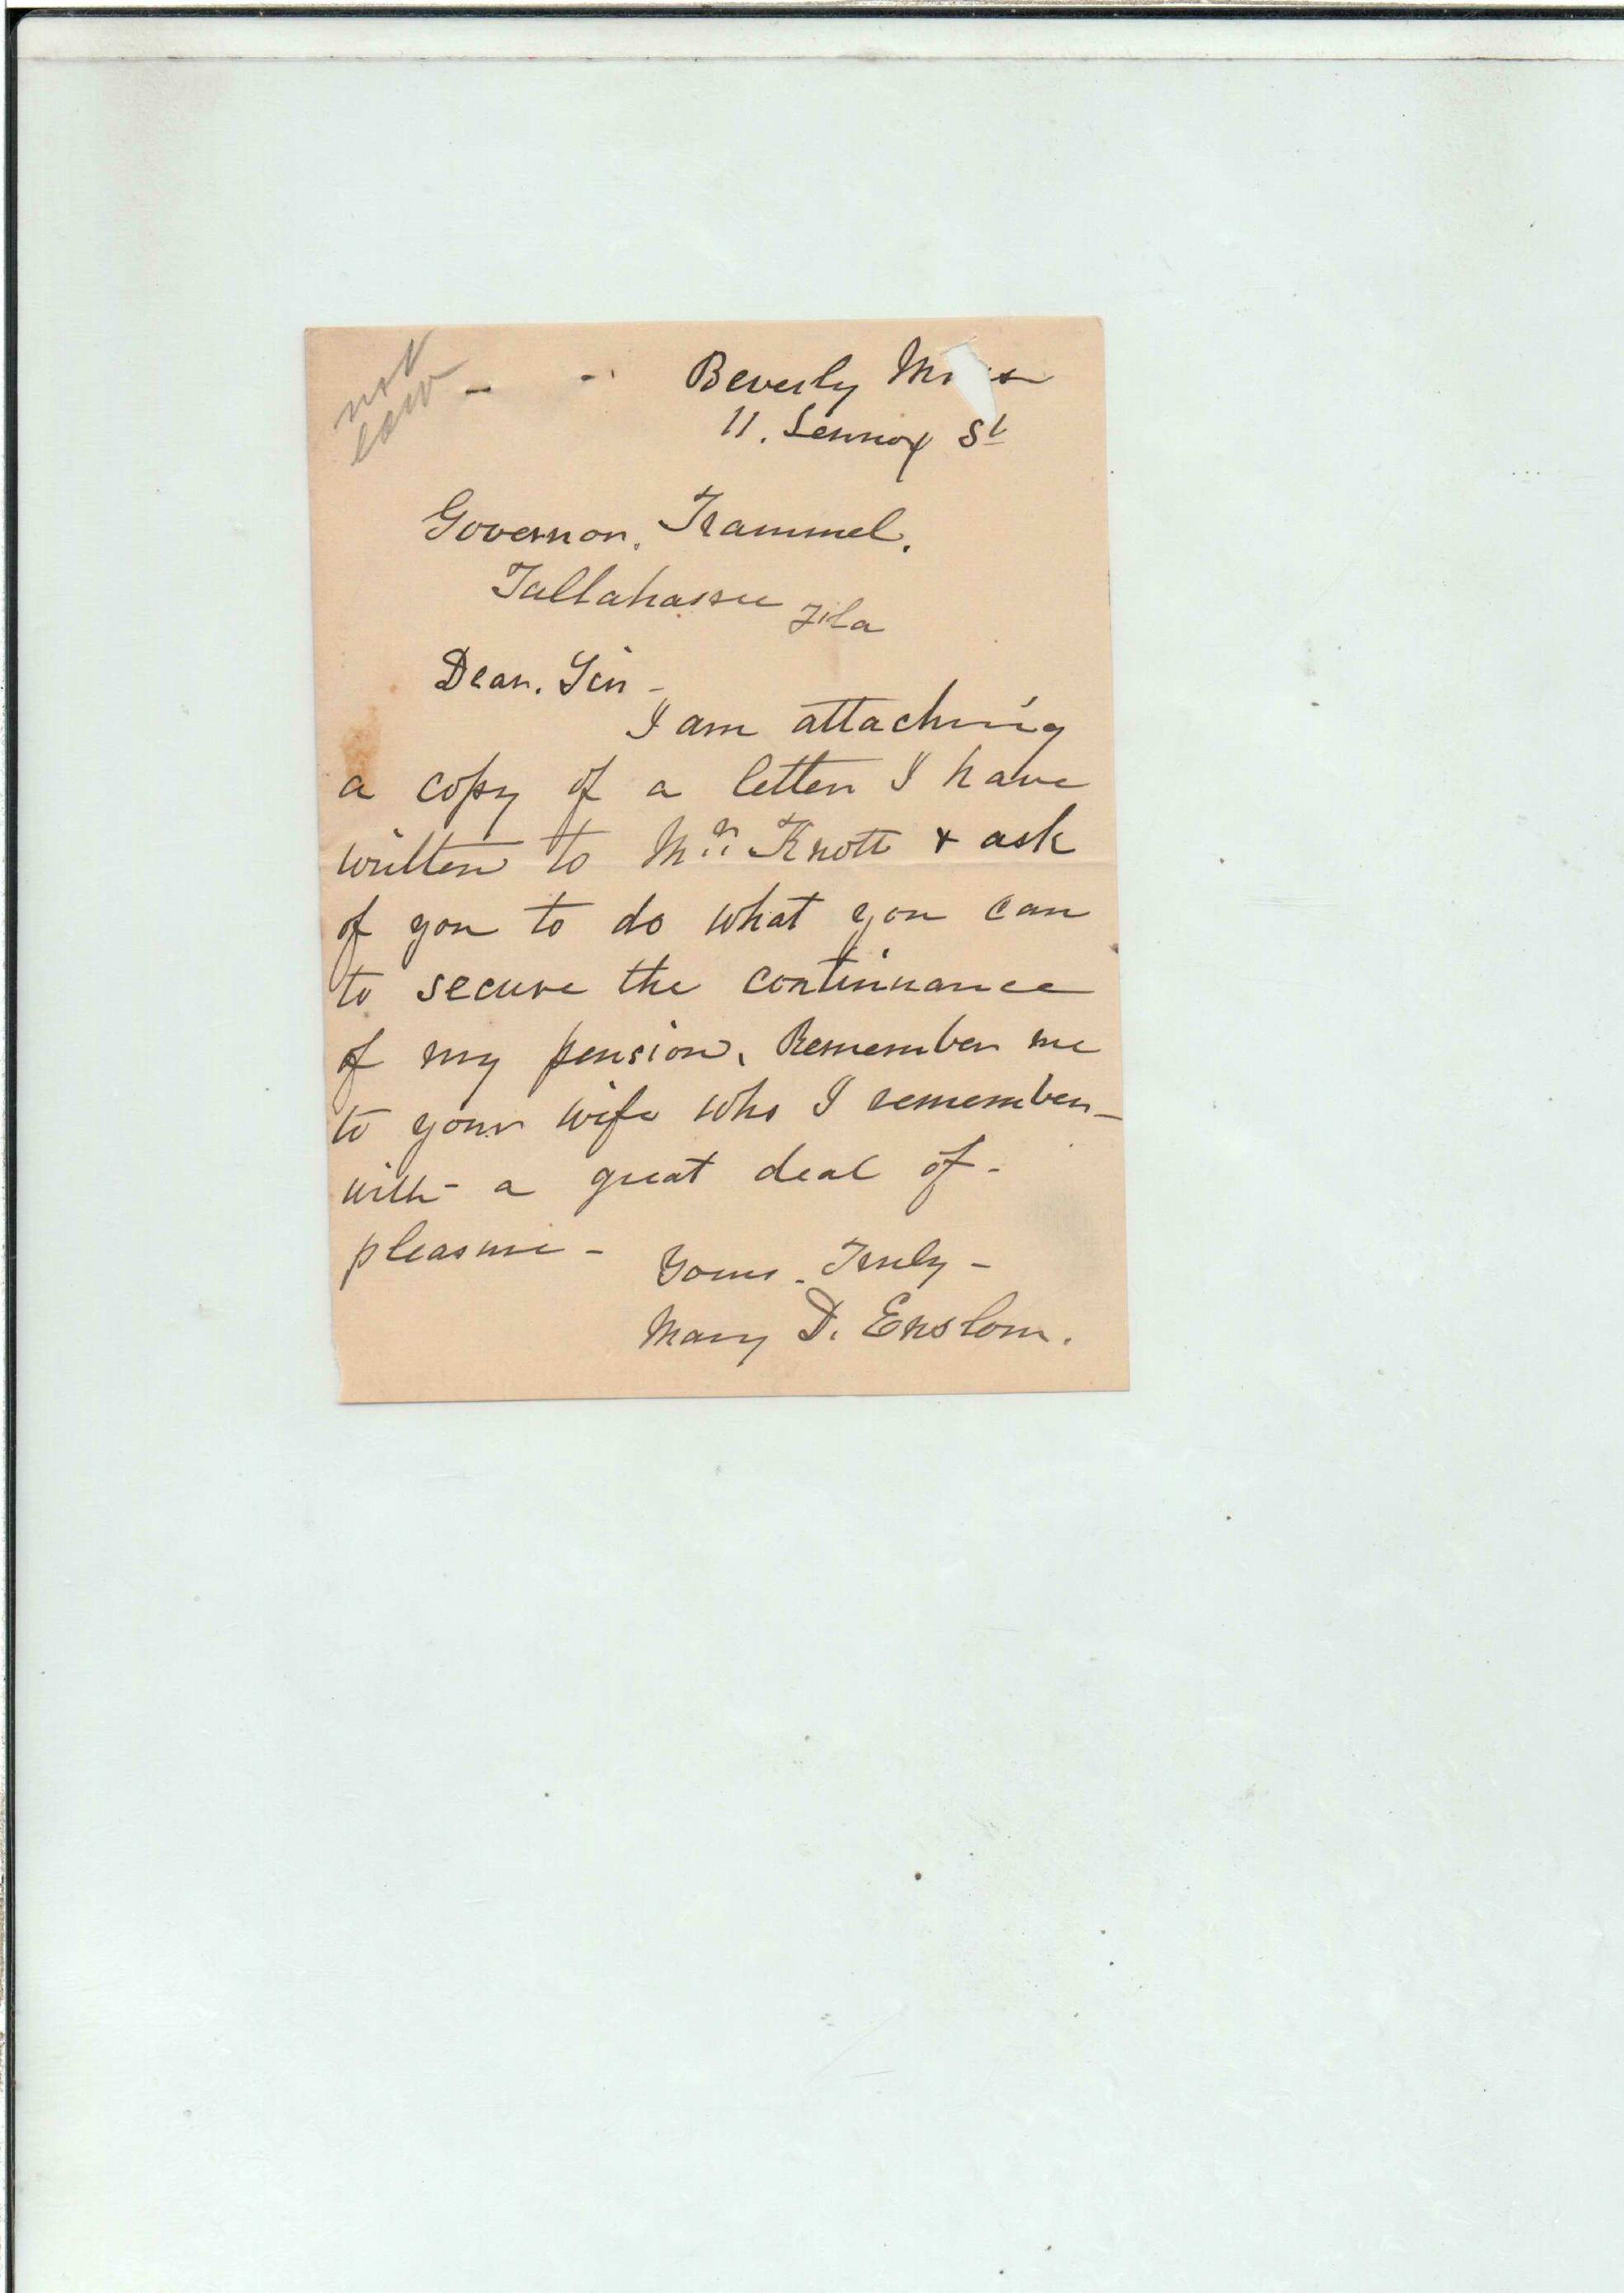 not
law
Beverly Mass
11. Lennox St
Governor. Trammel.
Tallahassee Fla
Dear. Sir -
I am attaching
a copy of a letter I have
written to Mr. Knott & ask
of you to do what you can
to secure the continuance
of my pension. Remember me
to your wife who I remember -
with - a great deal of -
pleasure -
Yours. Truly -
Mary D. Enslow.